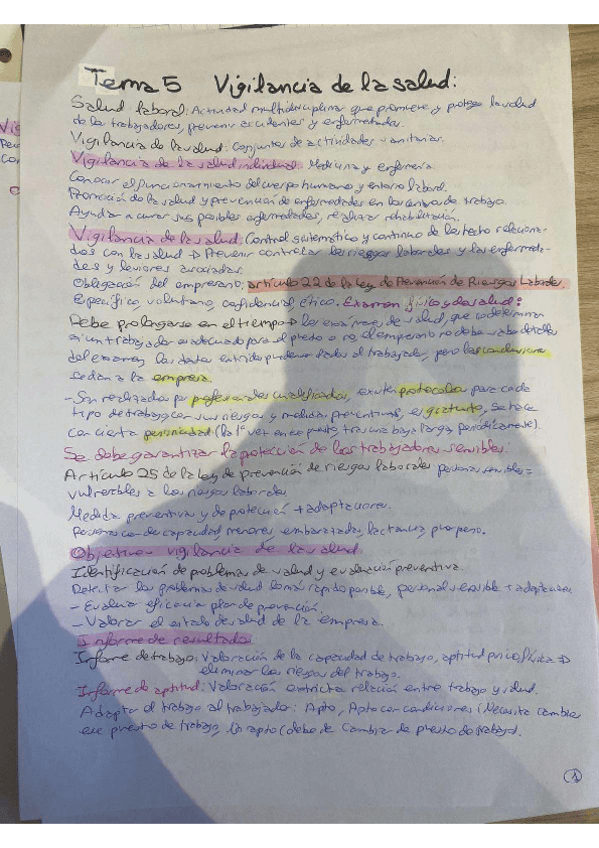 Tema 5 Vigilancia de la salud:
Salud laboral: Actividad multidisciplinar que promueve y protege la salud
de los trabajadores, prevenir accidentes y enfermedades.
Vigilancia de la salud: Conjuntos de actividades sanitarias.
Vigilancia de la salud individual: Medicina y enfermería.
Conocer el funcionamiento del cuerpo humano y entorno laboral.
Promoción de la salud y prevención de enfermedades en los centros de trabajo.
Ayudar a curar sus posibles enfermedades, realizar rehabilitación.
Vigilancia de la salud: Control sistemático y continuo de los hechos relaciona-
dos con la salud → Prevenir controlar los riesgos laborales y las enfermeda-
des y lesiones asociadas.
Obligación del empresario: artículo 22 de la Ley de Prevención de Riesgos Laborales.
Específico, voluntario, confidencial ético. Examen físico y de salud:
Debe prolongarse en el tiempo → los exámenes de salud, que
si un trabajador es adecuado para el puesto o no, el empresario no debe saber detalles
del examen, los datos pueden darlos al trabajador, pero las conclusiones
se dan a la empresa.
- Son realizados por profesionales cualificados, existen protocolos para cada
tipo de trabajo con sus riesgos y medidas preventivas, es gratuito, se hace
con cierta periocidad (la 1º vez en ese puesto, tras una baja larga, periódicamente).
Se debe garantizar la protección de los trabajadores sensibles:
Artículo 25 de la Ley de prevención de riesgos laborales personas sensibles =
vulnerables a los riesgos laborales
Medidas preventivas y de protección + adaptaciones.
Personas con discapacidad, menores, embarazadas, lactancia, postparto.
Objetivos vigilancia de la salud
Identificación de problemas de salud y evaluación preventiva.
Detectar los problemas de salud lo más rápido posible, personal sensible + adaptación
- Evaluar eficacia plan de prevención.
- Valorar el estado de salud de la empresa.
Informe de resultados
Informe de trabajo: Valoración de la capacidad de trabajo, aptitud psicofísica ⇒
eliminar los riesgos del trabajo.
Informe de aptitud: Valoración estricta relación entre trabajo y salud.
Adaptar el trabajo al trabajador: Apto, Apto con condiciones (Necesita cambios
ese puesto de trabajo, No apto (debe de cambiar de puesto de trabajo).
1